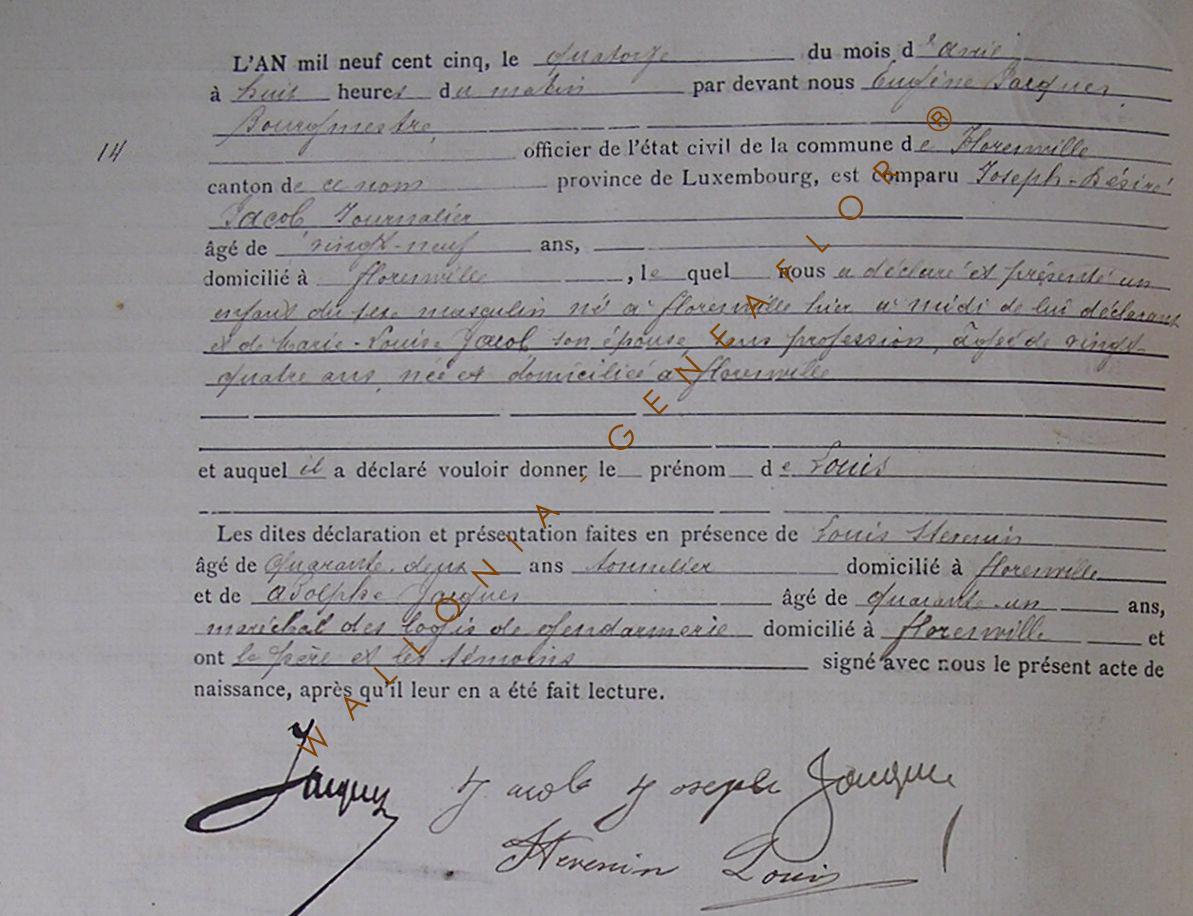 L'AN mil neuf cent cinq, le quatorze du mois d'avril
à huit heures du matin par devant nous Eugène Jacques,
Bourgmestre,
14 officier de l'état civil de la commune de Florenville
canton de ce nom province de Luxembourg, est comparu Joseph-Désiré
Jacob Journalier
âgé de vingt-neuf ans,
domicilié à Florenville, lequel nous a déclaré et présenté un
enfant du sexe masculin né à Florenville hier à midi de lui déclarant
et de Marie-Louise Jacob son épouse, sans profession, âgée de vingt-
quatre ans, née et domiciliée à Florenville
et auquel il a déclaré vouloir donner le prénom de Louis
Les dites déclaration et présentation faites en présence de Louis
âgé de quarante-deux ans tonnelier domicilié à Florenville
et de Adolphe Jacques âgé de quarante-un ans,
maréchal des logis de gendarmerie domicilié à Florenville et
ont le père et les témoins signé avec nous le présent acte de
naissance, après qu'il leur en a été fait lecture.
Jacques Jacob Joseph Jacques
Louis
WALLONIA - GENEAFLOR ®